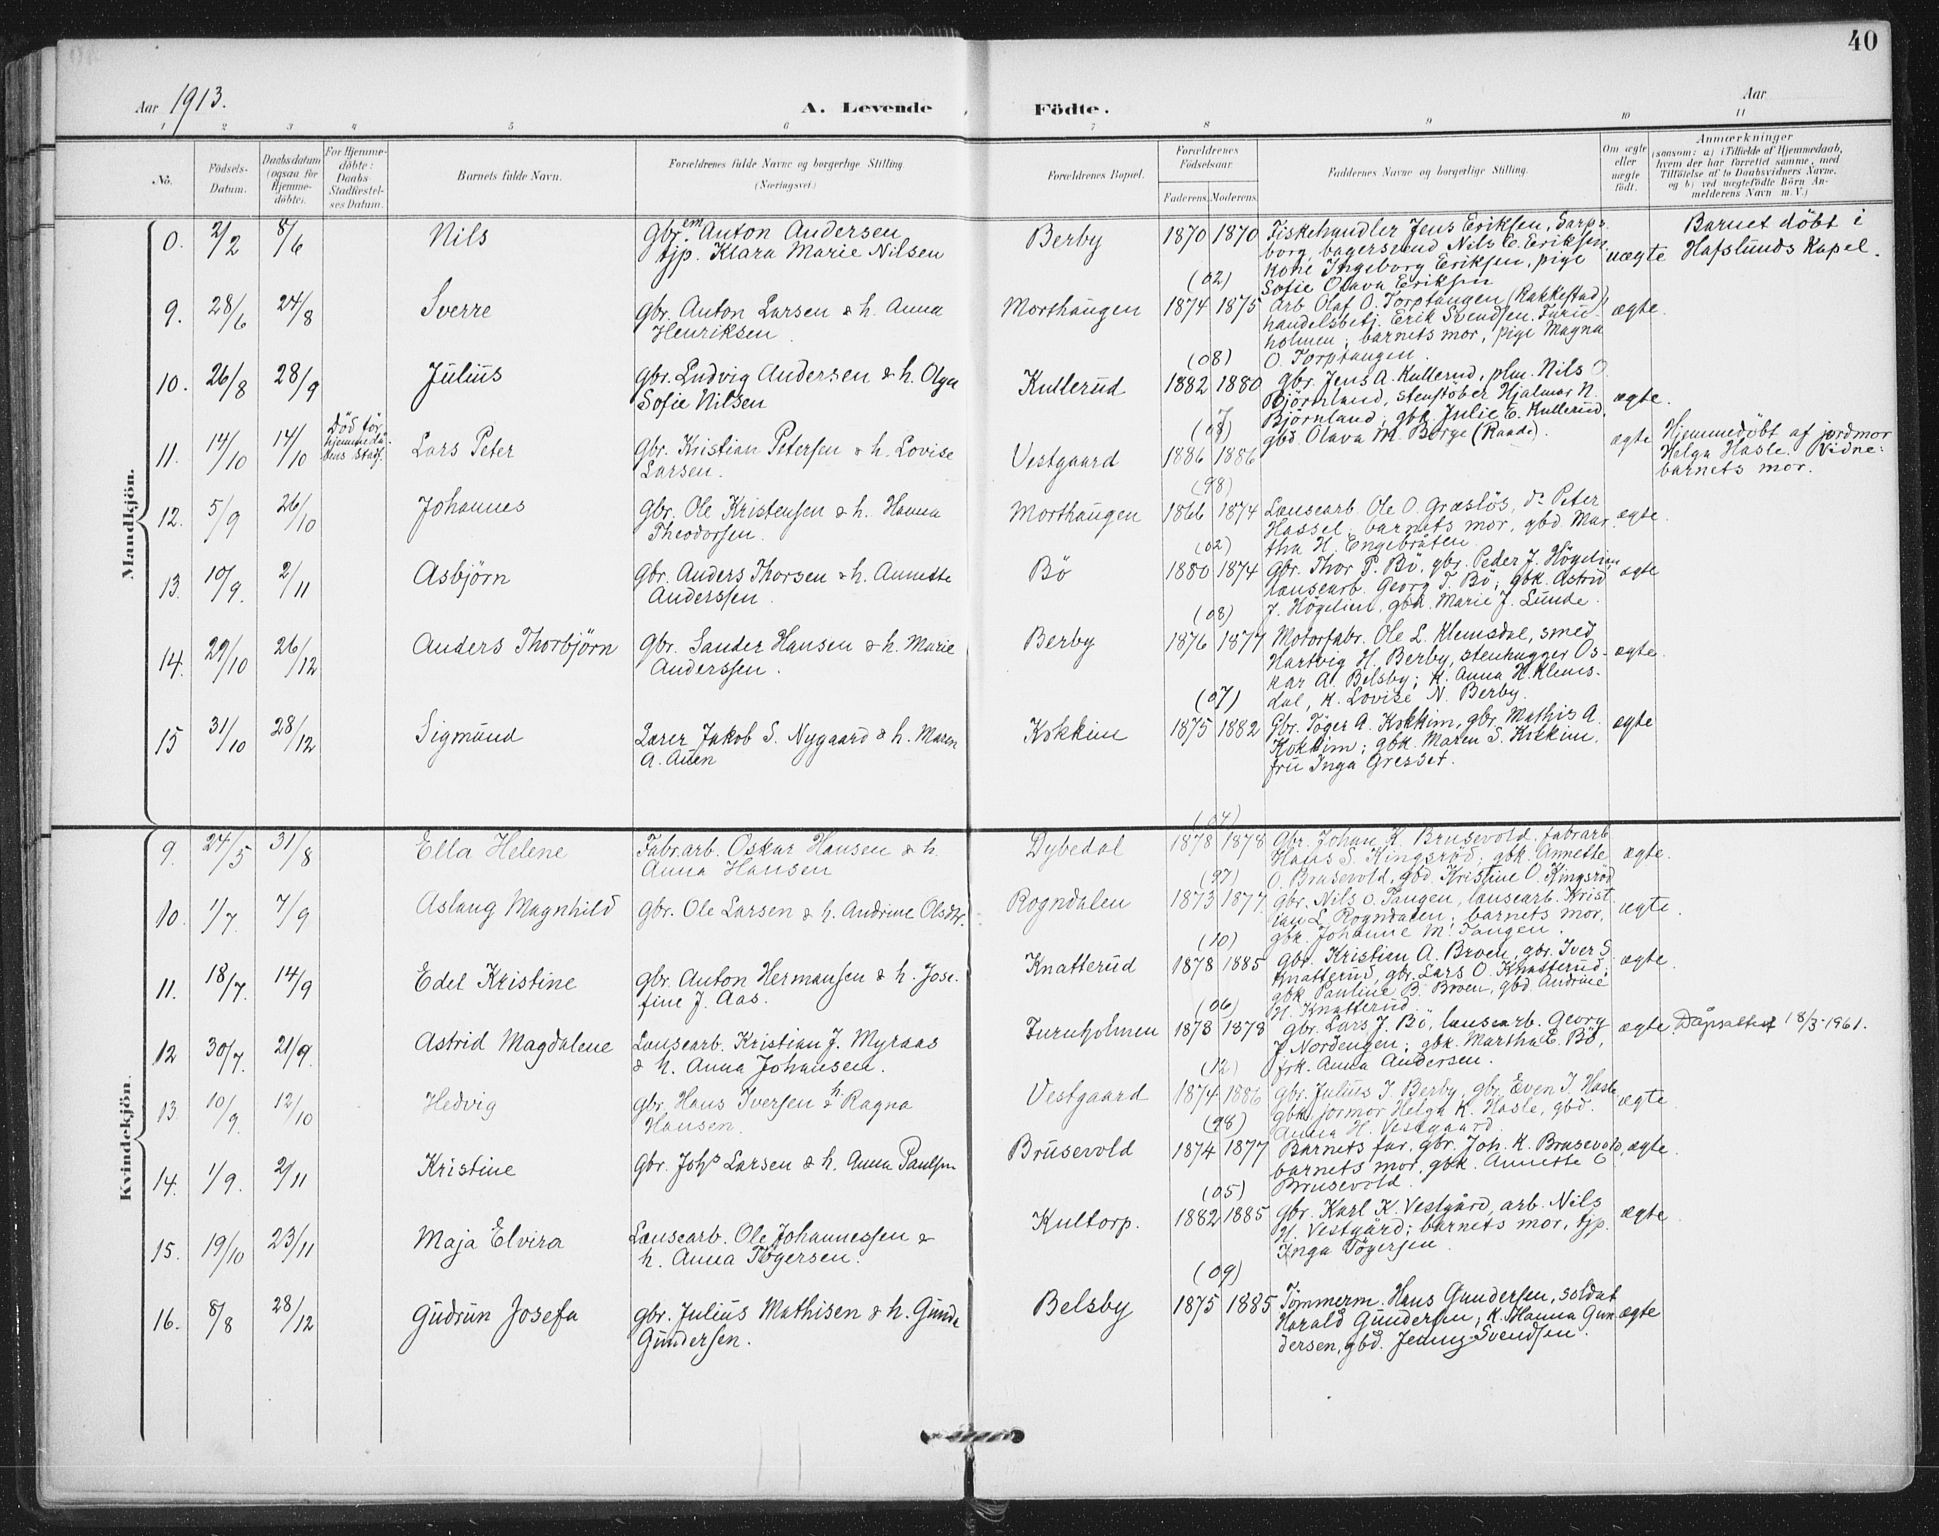 40
Aar 1913.
A. Levende Födte.
Aar
1 2 3 4 5 6 7 8 9 10 11
No.
Födsels-Datum.
Daabsdatum (ogsaa for Hjemmedöbte).
For Hjemmedöbte: Daabs-Stadfæstelses Datum.
Barnets fulde Navn.
Forældrenes fulde Navne og borgerlige Stilling (Næringsvei.)
Forældrenes Bopæl.
Forældrenes Födselsaar.
Faderens. Moderens.
Faddernes Navne og borgerlige Stilling.
Om ægte eller uægte födt.
Anmærkninger
(saasom: a) i Tilfælde af Hjemmedaab,
hvem der har forrettet samme, med
Tilföielse af to Daabsvidners Navne,
og b) ved uægtefödte Börn An-
melderens Navn m. V.)
Mandkjön.
0. 2/2 8/6 Nils
Gbr. em Anton Andersen
tjp. Klara Marie Nilsen
Berby 1870 1870
Fiskehandler Jens Eriksen, Sarps-
borg, bagersvend Nils E. Eriksen
kone Ingeborg Eriksen, pige
Sofie Olava Eriksen
uægte
Barnet döbt i
Hafslunds Kapel.
9. 28/6 24/8 Sverre
gbr. Anton Larsen & h. Anna
Henriksen
Morthaugen (02) 1874 1875
Arb. Olaf O. Torptangen (Rakkestad),
handelsbetj. Erik Svendsen Furu-
holmen; barnets mor, pige Magna
O. Torptangen.
ægte.
10. 26/8 28/9 Julius
gbr. Ludvig Andersen & h. Olga
Sofie Nilsen
Kullerud (08) 1882 1880
gbr. Jens A. Kullerud, plm. Nils O.
Björnland, stenstöber Hjalmar N.
Björnland; gbk. Julie E. Kullerud,
gbd. Olava M. Borge (Raade).
ægte.
11. 14/10 14/10
Död för
hjemmedå-
bens stadf.
Lars Peter
gbr. Kristian Petersen & h. Lovise
Larsen.
Vestgaard (07) 1886 1886
ægte
Hjemmedöbt af jordmor
Helga Hasle. Vidne:
barnets mor.
12. 5/9 26/10 Johannes
gbr. Ole Kristensen & h. Hanna
Theodorsen.
Morthaugen (98) 1866 1874
Lensearb. Ole O. Græslös, ds Peter
Hassel, barnets mor, gbd. Mar-
tha H. Engebråten
ægte.
13. 10/9 2/11 Asbjörn
Gbr. Anders Thorsen & h. Annette
Anderssen.
Bö (02) 1880 1874
Gbr. Thor P. Bö, gbr. Peder J. Högelien
lensearb. Georg T. Bö; gbk. Astrid
J. Högelien, gbk. Marie J. Lunde.
ægte
14. 29/10 26/12 Anders Thorbjörn
Gbr. Sander Hansen & h. Marie
Anderssen.
Berby (08) 1876 1877
Motorfabr. Ole L. Klemsdal, smed
Hartvig H. Berby, stenhugger Os-
kar A. Belsby; k. Anna H. Klems-
dal, k. Lovise N. Berby.
ægte.
15 31/10 28/12 Sigmund
Lærer Jakob S. Nygaard & h. Maren
A. Auen
Kokkim (07) 1875 1882
Gbr. Töger A. Kokkim, gbr. Mathis A.
Kokkim; gbk. Maren S. Kokkim,
fru Inga Gresset.
ægte
Kvindekjön.
9. 24/5 31/8 Ella Helene
Fabr.arb. Oskar Hansen & h.
Anna Hansen
Dybedal (04) 1878 1878
Gbr. Johan K. Brusevold, fabrarb
Hans S. Kingsröd; gbk. Annette
O. Brusevold, gbd. Kristine O. Kingsröd
ægte.
10. 1/7 7/9 Aslaug Magnhild
gbr. Ole Larsen & h. Andrine Olsdtr.
Rogndalen (97) 1873 1877
gbr. Nils O. Tangen, lensearb. Krist
ian L. Rogndalen; barnets mor,
gbk. Johanne M. Tangen.
ægte.
11. 18/7. 14/9 Edel Kristine
gbr. Anton Hermansen & h. Jose-
fine J. Aas.
Knatterud (10) 1878 1885
gbr. Kristian A. Broen, gbr. Iver S.
Knatterud, gbr. Lars O. Knatterud;
gbk. Pauline B. Broen, gbd. Andrine
H. Knatterud
ægte.
12 30/7. 21/9. Astrid Magdalene
Lensearb. Kristian J. Myraas
& h. Anna Johansen.
Furuholmen (06) 1873 1878
gbr. Lars J. Bö, lensearb. Georg
J. Nordengen; gbk. Martha E. Bö,
frk. Anna Andersen.
ægte. Dåpsattest 18/3-1961.
13 10/9. 12/10 Hedvig
gbr. Hans Iversen & h. Ragna
Hansen.
Vestgaard (12) 1874 1886
gbr. Julius I. Berby, gbr. Even I. Hasle
gbk. jormor Helga K. Hasle, gbd.
Anna H. Vestgaard.
ægte.
14. 1/9. 2/11 Kristine
Gbr. Johs Larsen & h. Anna Paulsen
Brusevold (98) 1874 1877
Barnets far, gbr. Joh. K. Brusevold,
barnets mor, gbk. Annette O
Brusevold.
ægte.
15. 19/10 23/11 Maja Elvira
Lensearb. Ole Johannessen &
h. Anna Tögersen.
Kultorp. (05) 1882 1885
gbr. Karl K. Vestgård, arb. Nils
H. Vestgård; barnets mor, tjp.
Inga Tögersen.
ægte.
16. 8/8 28/12 Gudrun Josefa
gbr. Julius Mathisen & h. Gunda
Gundersen.
Belsby (09) 1875 1885
Tömmerm. Hans Gundersen, soldat
Harald Gundersen; k. Hanna Gun
dersen, gbd. Jenny Svendsen.
ægte